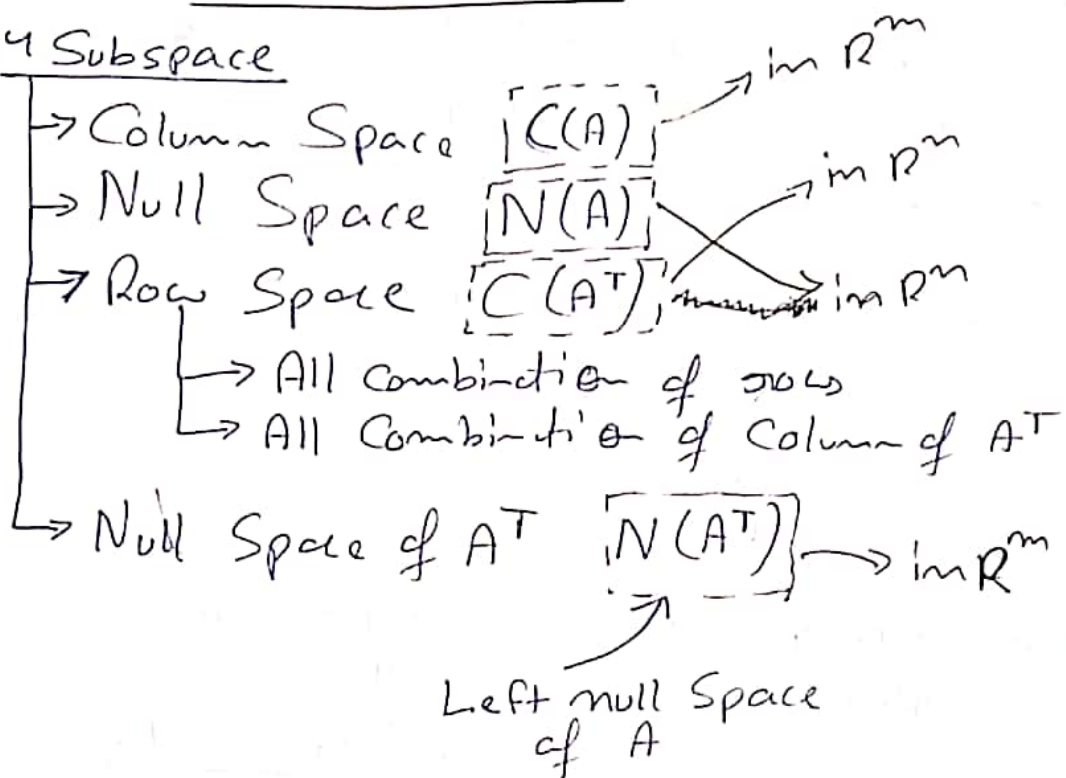 4 Subspace
→ Column Space C(A) → in R^m
→ Null Space N(A) → in R^n
→ Row Space C(A^T) → in R^n
→ All Combination of rows
→ All Combination of Column of A^T
→ Null Space of A^T N(A^T) → in R^m
Left null Space
of A